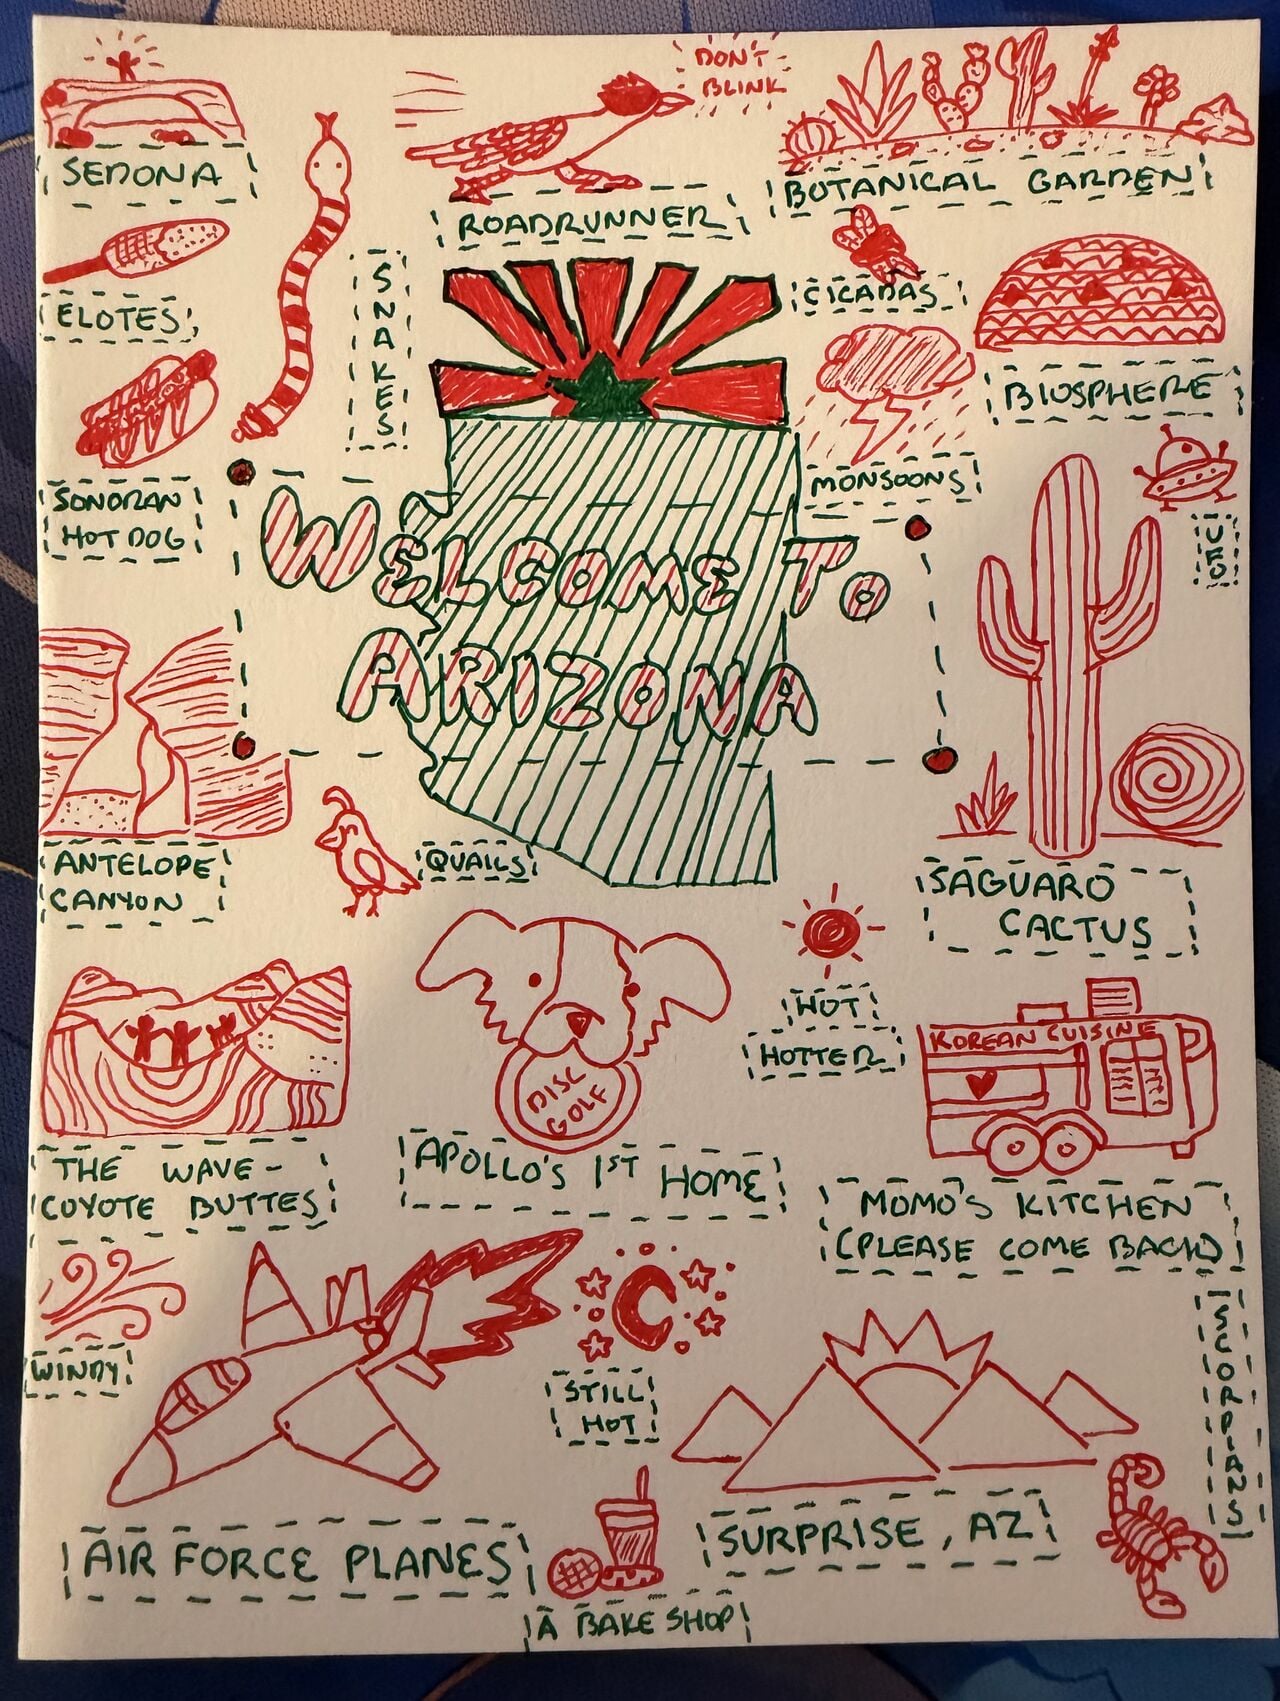 DON'T
BLINK
SEDONA
ROADRUNNER
BOTANICAL GARDEN
ELOTES
SNAKES
CICADAS
BIOSPHERE
SONORAN
HOT DOG
MONSOONS
UFO
WELCOME TO
ARIZONA
ANTELOPE
CANYON
QUAILS
SAGUARO
CACTUS
HOT
HOTTER
KOREAN CUISINE
DISC
GOLF
THE WAVE-
COYOTE BUTTES
APOLLO'S 1ST HOME
MOMO'S KITCHEN
(PLEASE COME BACK)
WINDY
STILL
HOT
SCORPIANS
AIR FORCE PLANES
SURPRISE, AZ
A BAKE SHOP